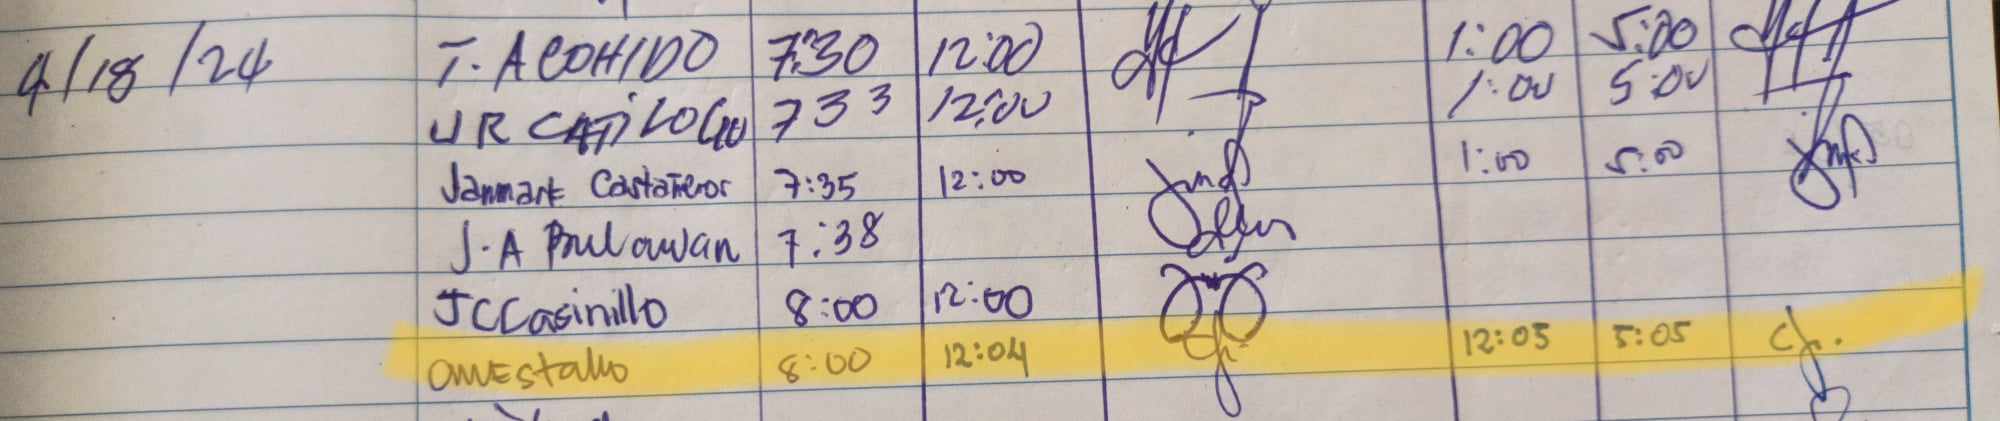 4/18/24 T. ACOHIDO 7:30 12:00 1:00 5:00
JR CATiLOGO 733 12:00 1:00 5:00
Janmark Castañeros 7:35 12:00 1:00 5:00
J.A Bulawan 7:38
JC Casinillo 8:00 12:00
8:00 12:04 12:05 5:05